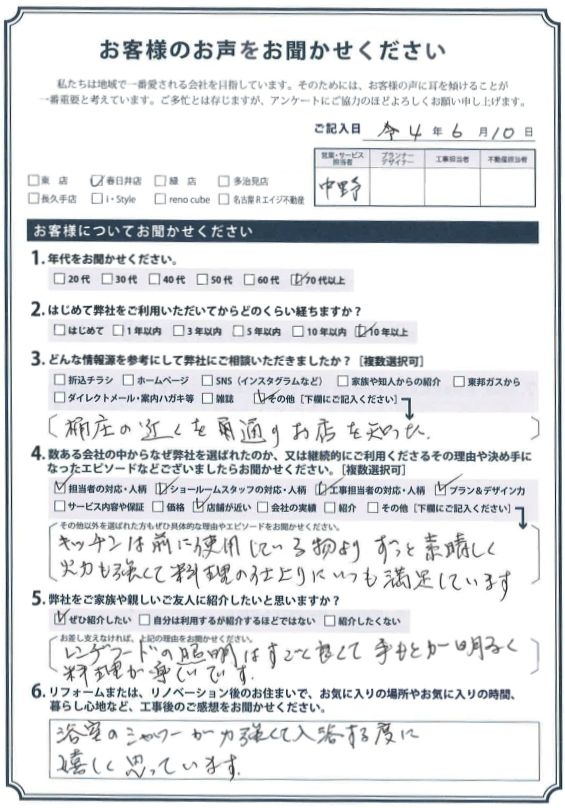 お客様のお声をお聞かせください
私たちは地域で一番愛される会社を目指しています。そのためには、お客様の声に耳を傾けることが
一番重要と考えています。ご多忙とは存じますが、アンケートにご協力のほどよろしくお願い申し上げます。
ご記入日 令4年6月10日
営業・サービス担当者 プランナーデザイナー 工事担当者 不動産担当者
中野
東店 春日井店 緑店 多治見店
長久手店 i・Style reno cube 名古屋Rエイジ不動産
お客様についてお聞かせください
1. 年代をお聞かせください。
20代 30代 40代 50代 60代 70代以上
2. はじめて弊社をご利用いただいてからどのくらい経ちますか?
はじめて 1年以内 3年以内 5年以内 10年以内 10年以上
3. どんな情報源を参考にして弊社にご相談いただきましたか?[複数選択可]
折込チラシ ホームページ SNS(インスタグラムなど) 家族や知人からの紹介 東邦ガスから
ダイレクトメール・案内ハガキ等 雑誌 その他[下欄にご記入ください]
の近くを通りお店を知った.
4. 数ある会社の中からなぜ弊社を選ばれたのか、又は継続的にご利用くださるその理由や決め手に
なったエピソードなどございましたらお聞かせください。[複数選択可]
担当者の対応・人柄 ショールームスタッフの対応・人柄 工事担当者の対応・人柄 プラン&デザイン力
サービス内容や保証 価格 店舗が近い 会社の実績 紹介 その他[下欄にご記入ください]
その他以外を選ばれた方もぜひ具体的な理由やエピソードをお聞かせください。
キッチンは前に使用している物よりずっと素晴しく
火力も強くて料理の仕上りにいつも満足しています
5. 弊社をご家族や親しいご友人に紹介したいと思いますか?
ぜひ紹介したい 自分は利用するが紹介するほどではない 紹介したくない
お差し支えなければ、上記の理由をお聞かせください。
レンヂフードの照明はすごく良くて手もとが明るく
料理が楽しいです.
6. リフォームまたは、リノベーション後のお住まいで、お気に入りの場所やお気に入りの時間、
暮らし心地など、工事後のご感想をお聞かせください。
浴室のシャワーが力強くて入浴する度に
嬉しく思っています.